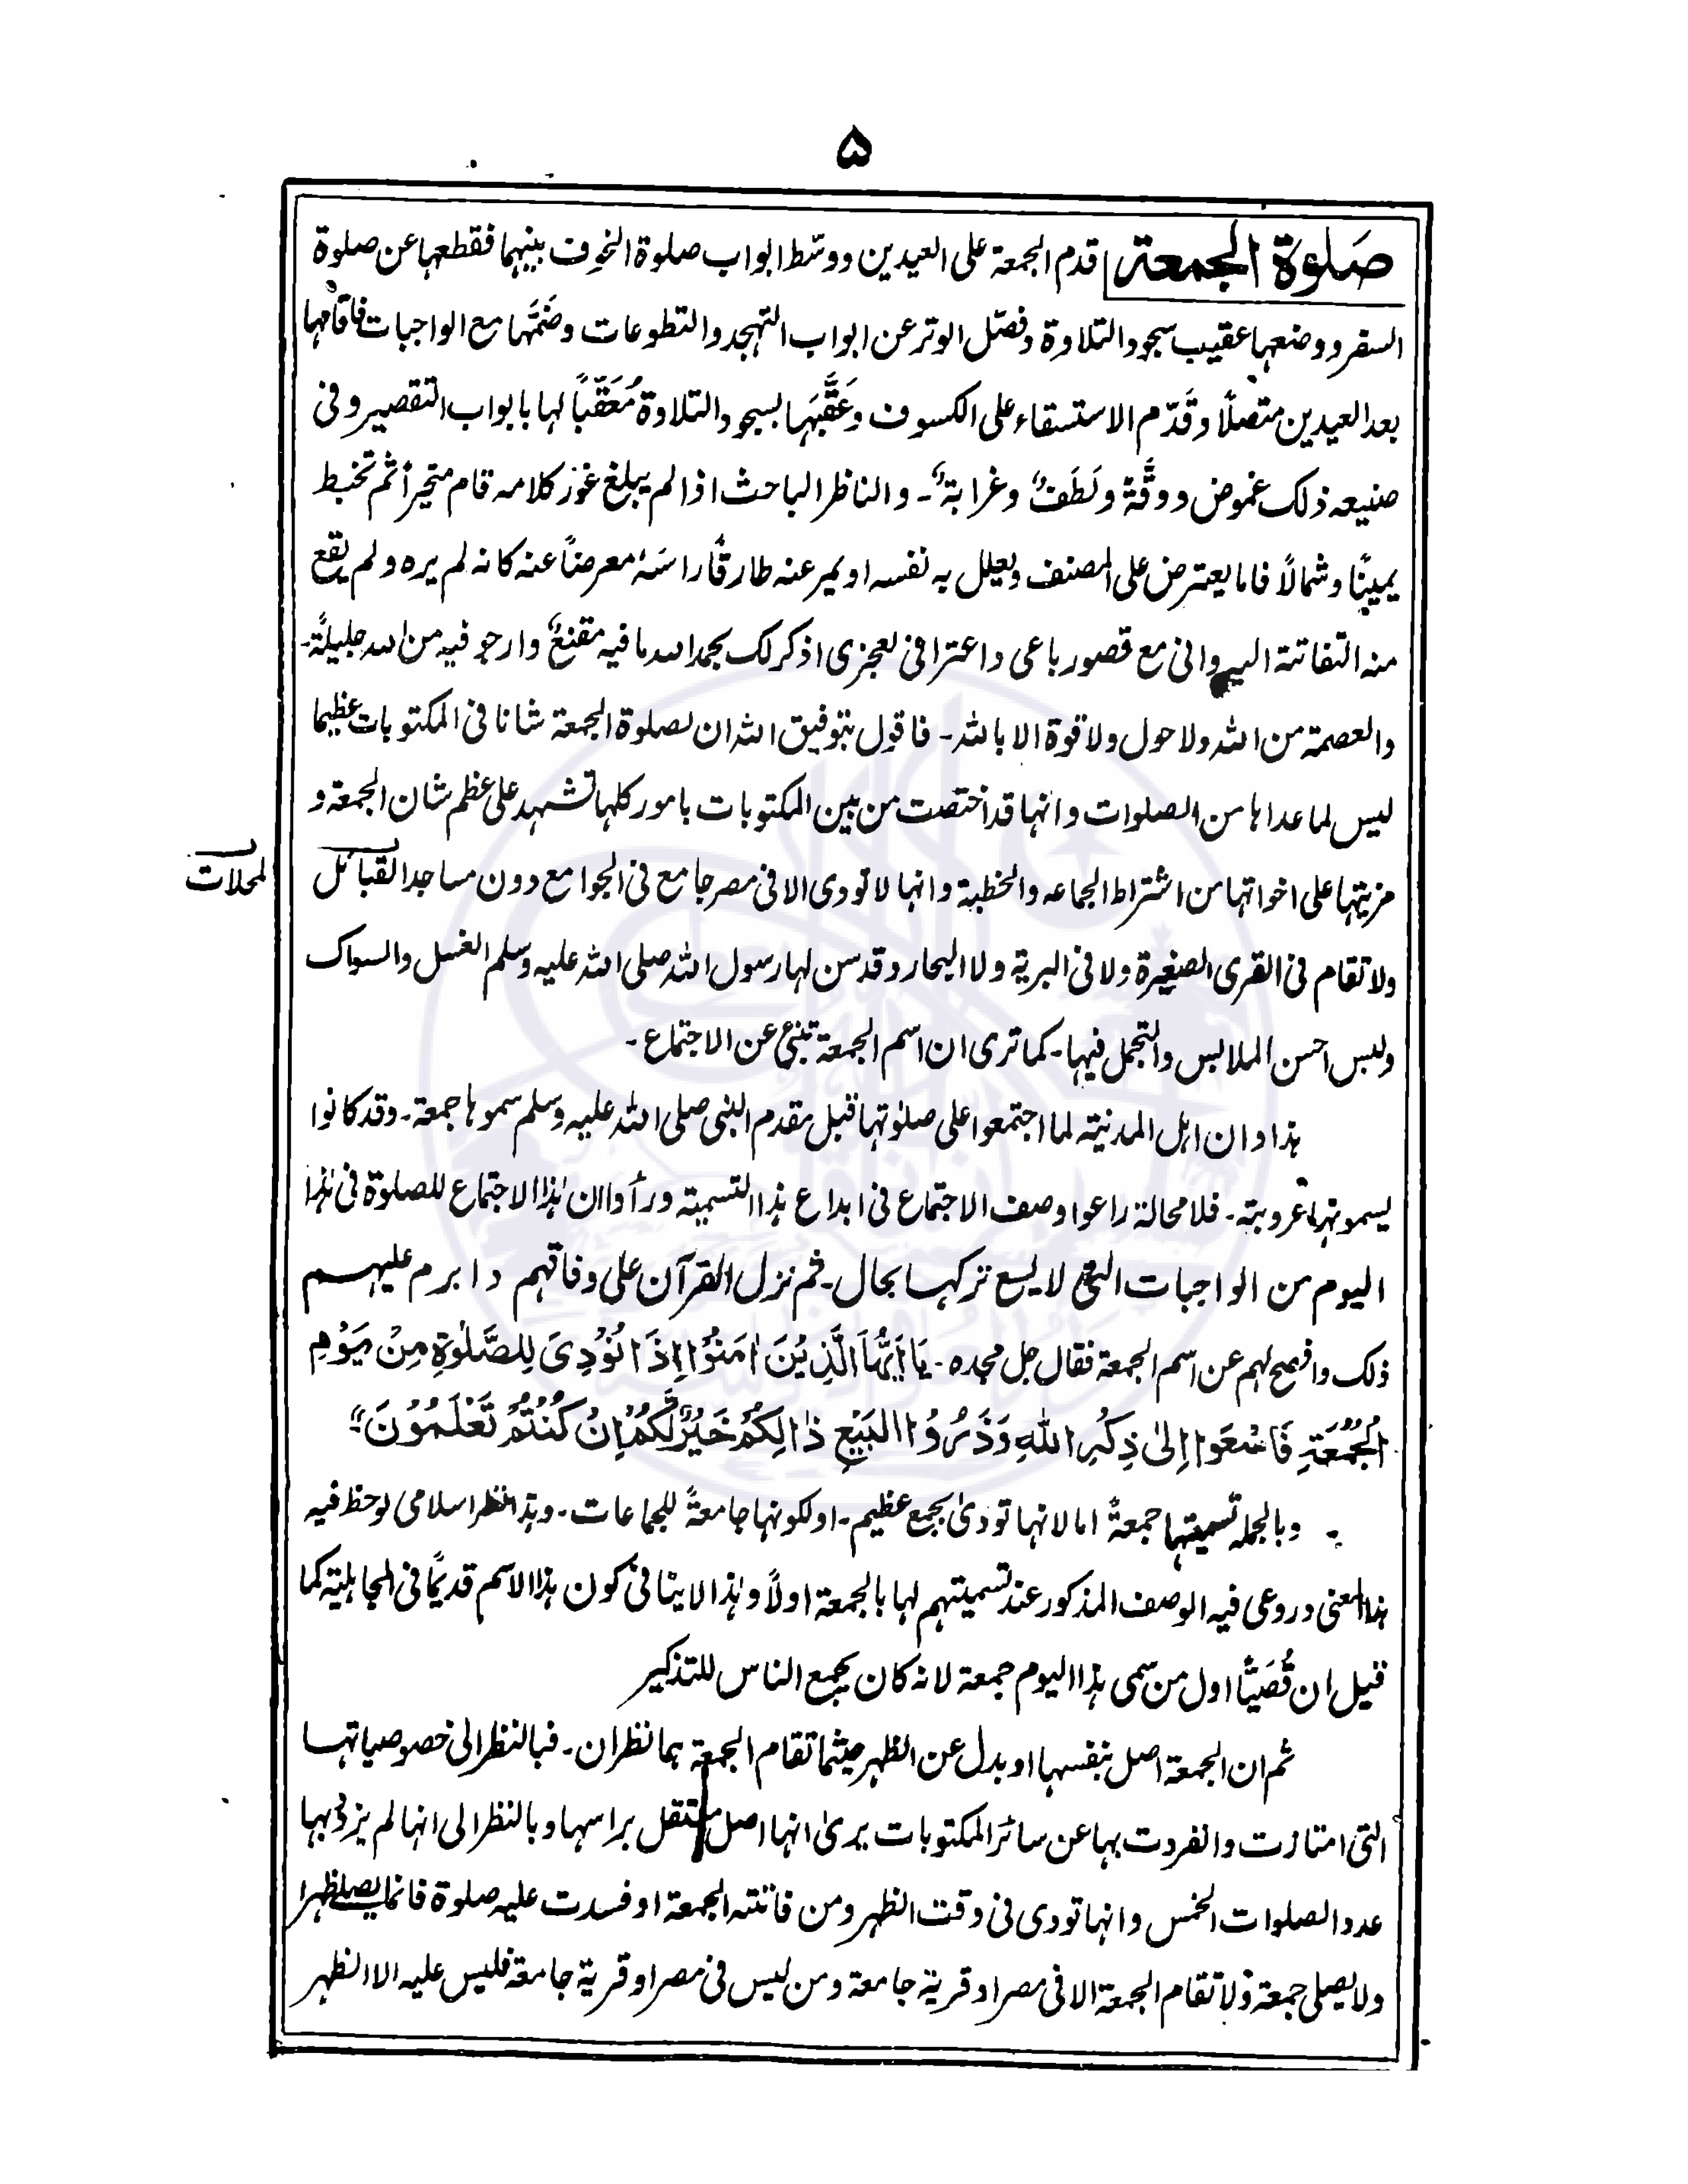 ۵
صَلوٰۃ الجمعۃ قدم الجمعۃ علی العیدین ووسّط ابواب صلوۃ الخوف بینہما فقطعہا عن صلوۃ
السفر ووضعہا عقیب سجود التلاوۃ وفصّل الوتر عن ابواب التہجد والتطوعات وضمّہا مع الواجبات فاقامہا
بعد العیدین متصلاً وقَدّم الاستسقاء علی الکسوف وعَقَّبَہا بسجود التلاوۃ مُعَقِّباً لہا بابواب التقصیر وفی
صنیعہ ذلک غموض ودِقَّۃٌ ولَطَفٌ وغرابۃٌ۔ والناظر الباحث اذا لم یبلغ غور کلامہ قام متحیراً ثم تخبط
یمیناً وشمالاً فاما یعترض علی المصنف ویعلل بہ نفسہ او یمر عنہ طارقاً راسَہٗ معرضاً عنہ کانہ لم یرہ ولم یقع
منہ التفاتۃ الیہ وانی مع قصور باعی واعترافی لعجزی اذکر لک بحمد اللہ ما فیہ مقنعٌ وارجو فیہ من اللہ جلیلۃً۔
والعصمۃ من اللہ ولا حول ولا قوۃ الا باللہ۔ فاقول بتوفیق اللہ ان لصلوۃ الجمعۃ شانا فی المکتوبات عظیما
لیس لما عداہا من الصلوات وانہا قد اختصت من بین المکتوبات بامور کلہا تشہد علی عظم شان الجمعۃ و
مزیتہا علی اخواتہا من اشتراط الجماعہ والخطبۃ وانہا لا تودی الا فی مصر جامع فی الجوامع دون مساجد القبائل
لمحلات
ولا تقام فی القری الصغیرۃ ولا فی البریۃ ولا البحار وقد سن لہا رسول اللہ صلی اللہ علیہ وسلم الغسل والسواک
ولبس احسن الملابس والتجمل فیہا۔ کما تری ان اسم الجمعۃ تنبئ عن الاجتماع۔
ہذا وان اہل المدینۃ لما اجتمعوا علی صلوٰتہا قبل مقدم النبی صلی اللہ علیہ وسلم سموہا جمعۃ۔ وقد کانوا
یسمونہا عروبۃ۔ فلا محالۃ راعوا وصف الاجتماع فی ابداع ہذا التسمیۃ ورأوا ان ہٰذا الاجتماع للصلوۃ فی ہٰذا
الیوم من الواجبات التی لا یسع ترکہا بحال۔ ثم نزل القرآن علی وفاقہم وابرم علیہم
ذلک وافصح لہم عن اسم الجمعۃ فقال جل مجدہ۔ یَا اَیُّہَا الَّذِیْنَ اٰمَنُوْا اِذَا نُوْدِیَ لِلصَّلٰوۃِ مِنْ یَوْمِ
الْجُمُعَۃِ فَاسْعَوا اِلیٰ ذِکْرِ اللّٰہِ وَذَرُوْا الْبَیْعَ ذٰالِکُمْ خَیْرٌ لَّکُمْ اِنْ کُنْتُمْ تَعْلَمُوْنَ
وبالجملہ تسمیتہا جمعۃً اما لانہا تودیٰ بجمع عظیم۔ او لکونہا جامعۃً للجماعات۔ وہذا نظر اسلامی لوحظ فیہ
ہذا المعنی وروعی فیہ الوصف المذکور عند تسمیتہم لہا بالجمعۃ اولاً وہٰذا لا ینافی کون ہذا الاسم قدیماً فی الجاہلیۃ کما
قیل ان قُصَیّاً اول من سمی ہذا الیوم جمعۃ لانہ کان یجمع الناس للتذکیر
ثم ان الجمعۃ اصل بنفسہا او بدل عن الظہر حیثما تقام الجمعۃ ہما نظران۔ فبالنظر الی خصوصیاتہا
التی امتازت وانفردت بہا عن سائر المکتوبات یریٰ انہا اصل مستقل براسہا وبالنظر الی انہا لم یزد بہا
عدد الصلوات الخمس وانہا تودی فی وقت الظہر ومن فاتتہ الجمعۃ او فسدت علیہ صلوۃ فانما یصلے ظہرا
ولا یصلی جمعۃ ولا تقام الجمعۃ الا فی مصر او قریۃ جامعۃ ومن لیس فی مصر او قریۃ جامعۃ فلیس علیہ الا الظہر